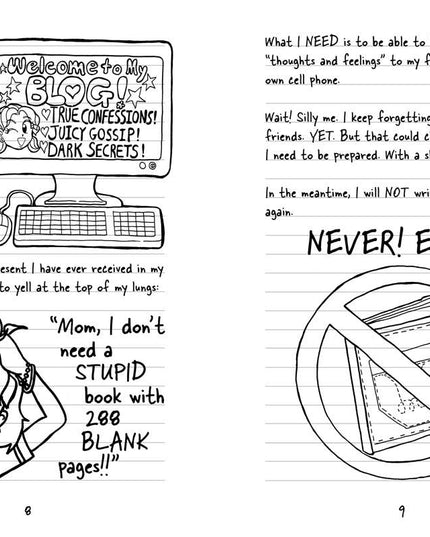 Welcome to My
BLOG!
TRUE CONFESSIONS!
JUICY GOSSIP!
DARK SECRETS!
esent I have ever received in my
to yell at the top of my lungs:
"Mom, I don't
need a
STUPID
book with
288
BLANK
pages!!"
8
What I NEED is to be able to
"thoughts and feelings" to my f
own cell phone.
Wait! Silly me. I keep forgetting
friends. YET. But that could c
I need to be prepared. With a s
In the meantime, I will NOT wri
again.
NEVER! E
9